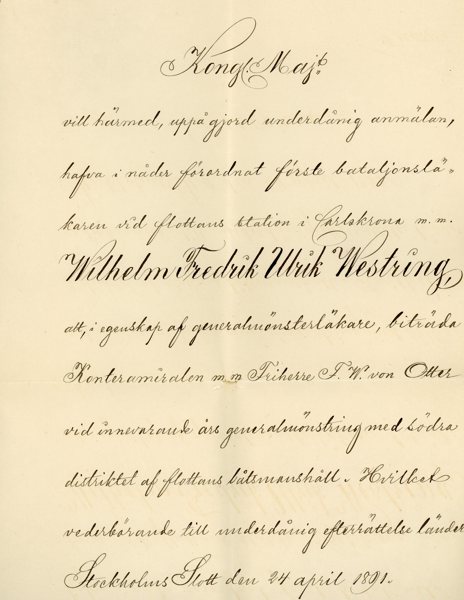 Kongl. Maj:t
vill härmed, uppå gjord underdånig anmälan,
hafva i nåder förordnat förste bataljonslä-
karen vid flottans station i Carlskrona m. m.
Wilhelm Fredrik Ulrik Westring,
att, i egenskap af generalmönsterläkare, biträda
Konteramiralen m m Friherre F. W. von Otter
vid innevarande års generalmönstring med södra
distriktet af flottans båtsmanshåll. Hvilket
vederbörande till underdånig efterrättelse länder
Stockholms Slott den 24 april 1891.